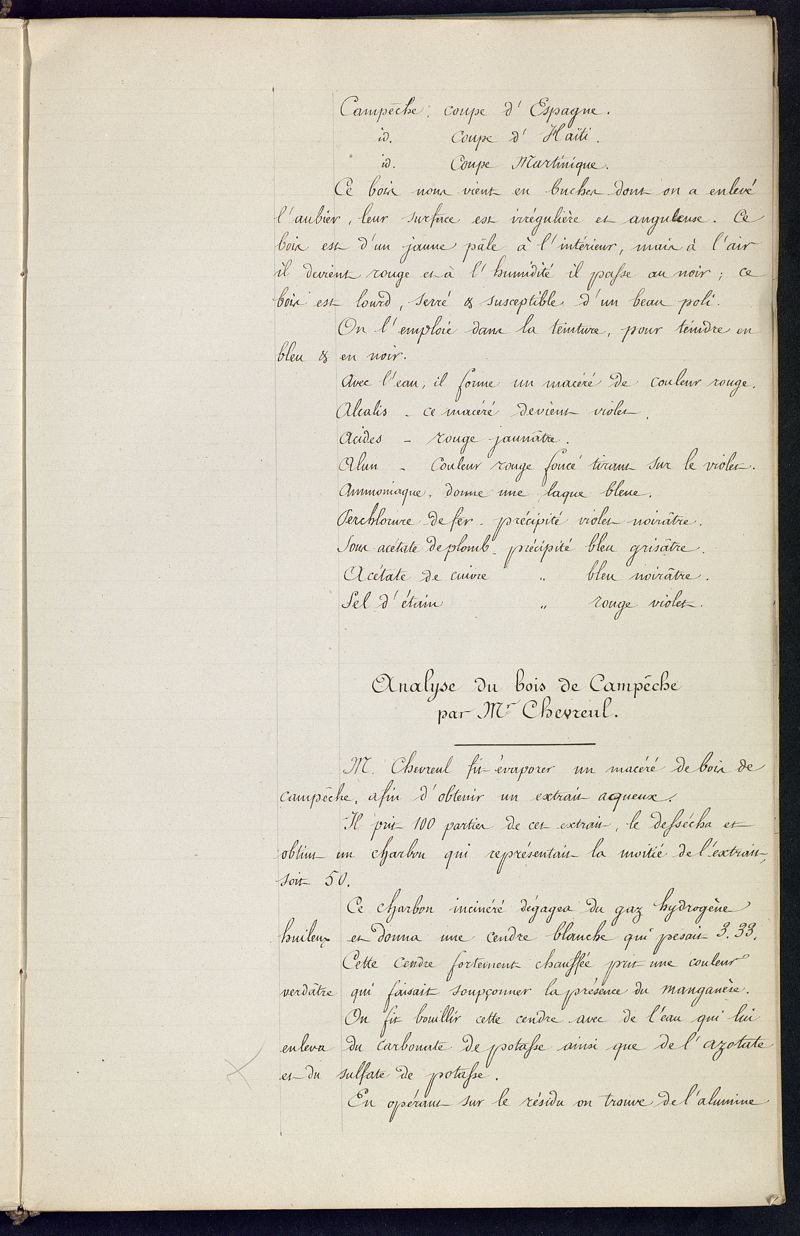 Campêche : coupe d'Espagne.
id. coupe d'Haïti.
id. Coupe Martinique.
Ce bois nous vient en buches dont on a enlevé
l'aubier, leur surface est irrégulière et anguleuse. Ce
bois est d'un jaune pâle à l'intérieur, mais à l'air
il devient rouge et à l'humidité il passe au noir ; ce
bois est lourd, serré & susceptible d'un beau poli.
On l'emploie dans la teinture, pour teindre en
bleu & en noir.
Avec l'eau, il forme un macéré de couleur rouge.
Alcalis - ce macéré devient violet.
Acides - rouge jaunâtre.
Alun - Couleur rouge foncé tirant sur le violet.
Ammoniaque. donne une laque bleue.
Perchlorure de fer - précipité violet noirâtre.
Sous acétate de plomb - précipité bleu grisâtre.
Acétate de cuivre " bleu noirâtre.
Sel d'étain " rouge violet.
Analyse du bois de Campêche
par Mr Chevreul.
M. Chevreul fit évaporer un macéré de bois de
campêche, afin d'obtenir un extrait aqueux.
Il prit 100 parties de cet extrait, le dessécha et
obtint un charbon qui représentait la moitié de l'extrait,
soit 50.
Ce charbon incinéré dégagea du gaz hydrogène
huileux et donna une cendre blanche qui pesait 3.33.
Cette cendre fortement chauffée prit une couleur
verdâtre qui faisait soupçonner la présence du manganèse.
On fit bouillir cette cendre avec de l'eau qui lui
enleva du carbonate de potasse ainsi que de l'azotate
et du sulfate de potasse.
En opérant sur le résidu on trouve de l'alumine